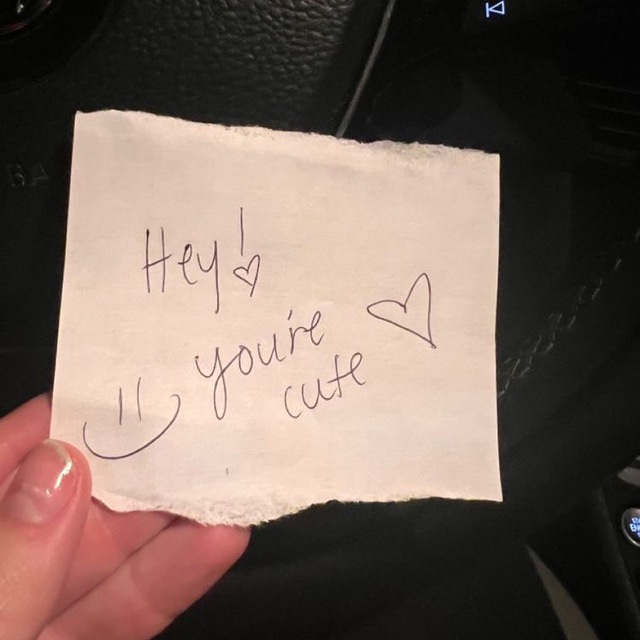 Hey!
you're
cute